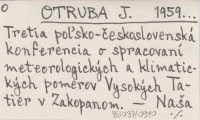 O OTRUBA J. 1959...
Tretia poľsko-československá
konferencia o spracovaní
meteorologických a klimatic-
kých pomerov Vysokých Ta-
tier v Zakopanom. — Naša
./.